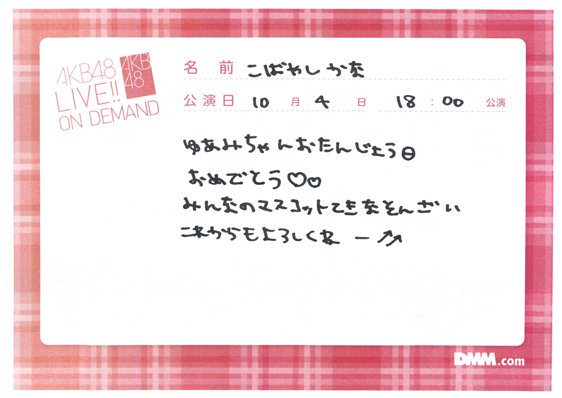 AKB48
LIVE!!
ON DEMAND
AKB
48
名前 こばやしかな
公演日 10月4日 18:00 公演
ゆあみちゃんおたんじょう日
おめでとう♡♡
みんなのマスコットてきなそんざい
これからもよろしくね ー↗↗
DMM.com